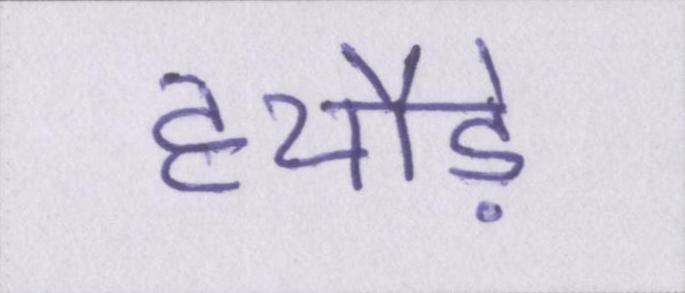 हथौड़े